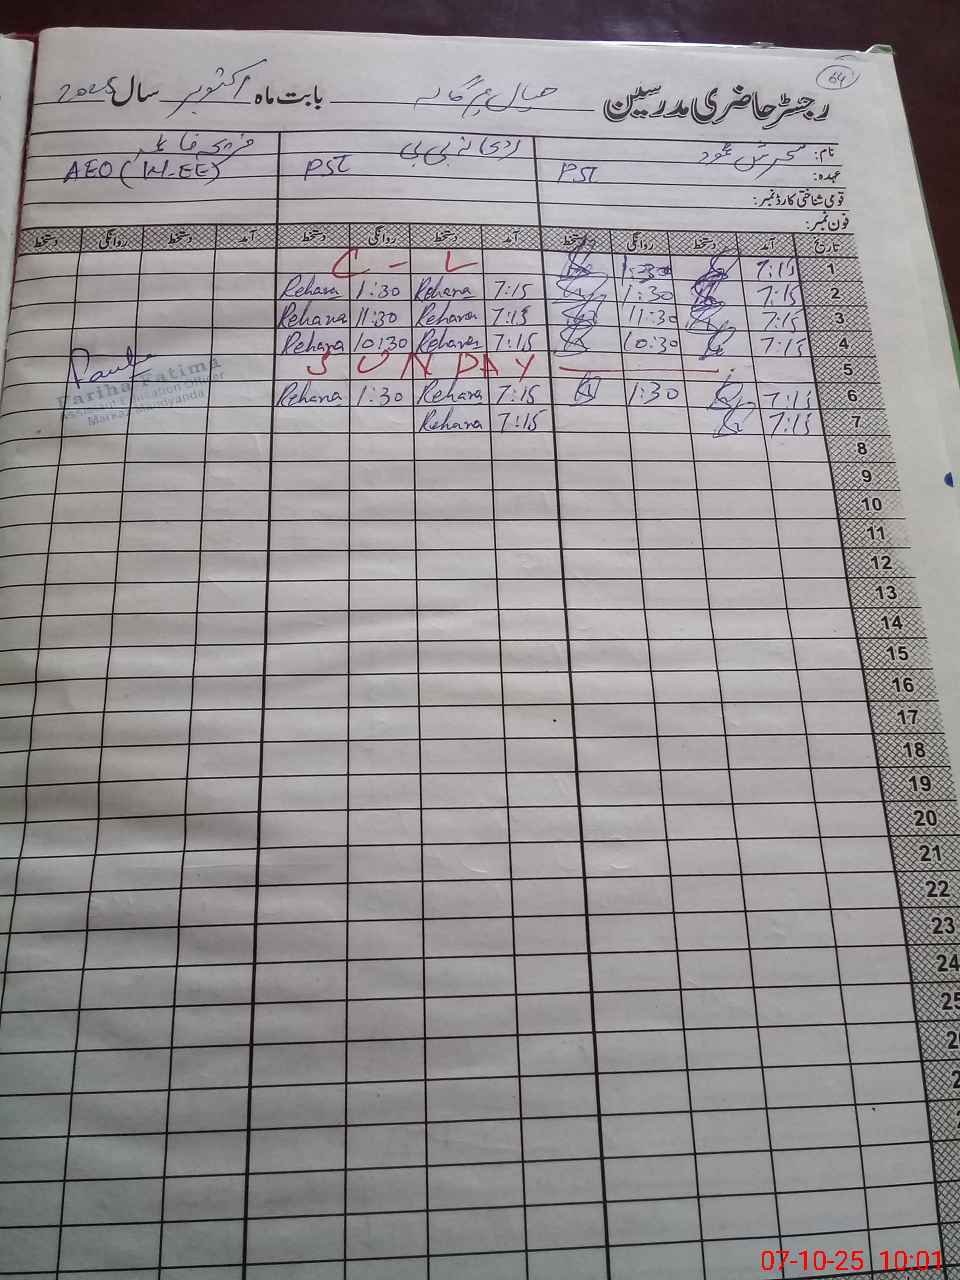 64
رجسٹر حاضری مدرسین بابت ماہ اکتوبر سال 2025
نام: سحرش ریحانہ بی بی فریحہ فاطمہ
عہدہ: PST PST AEO (W-EE)
قومی شناختی کارڈ نمبر:
فون نمبر:
تاریخ آمد دستخط روانگی دستخط آمد دستخط روانگی دستخط آمد دستخط روانگی دستخط
1 7:15 1:30 C-L
2 7:15 1:30 7:15 Rehana 1:30 Rehana
3 7:15 11:30 7:15 Rehana 11:30 Rehana
4 7:15 10:30 7:15 Rehana 10:30 Rehana
5 SUNDAY
6 7:15 1:30 7:15 Rehana 1:30 Rehana
7 7:15 7:15 Rehana
Fariha Fatima
Assistant Education Officer
Markaz
8
9
10
11
12
13
14
15
16
17
18
19
20
21
22
23
24
25
07-10-25 10:01